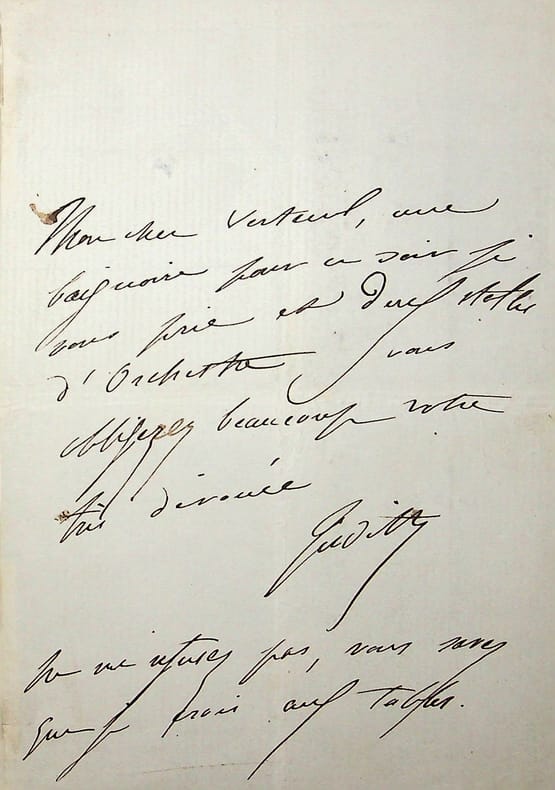 Mon cher Verteuil, une
baignoire pour ce soir je
vous prie et deux stalles
d'Orchestre, vous
obligerez beaucoup votre
très dévouée
Judith
ne me refusez pas, vous savez
que je irais aux tables.